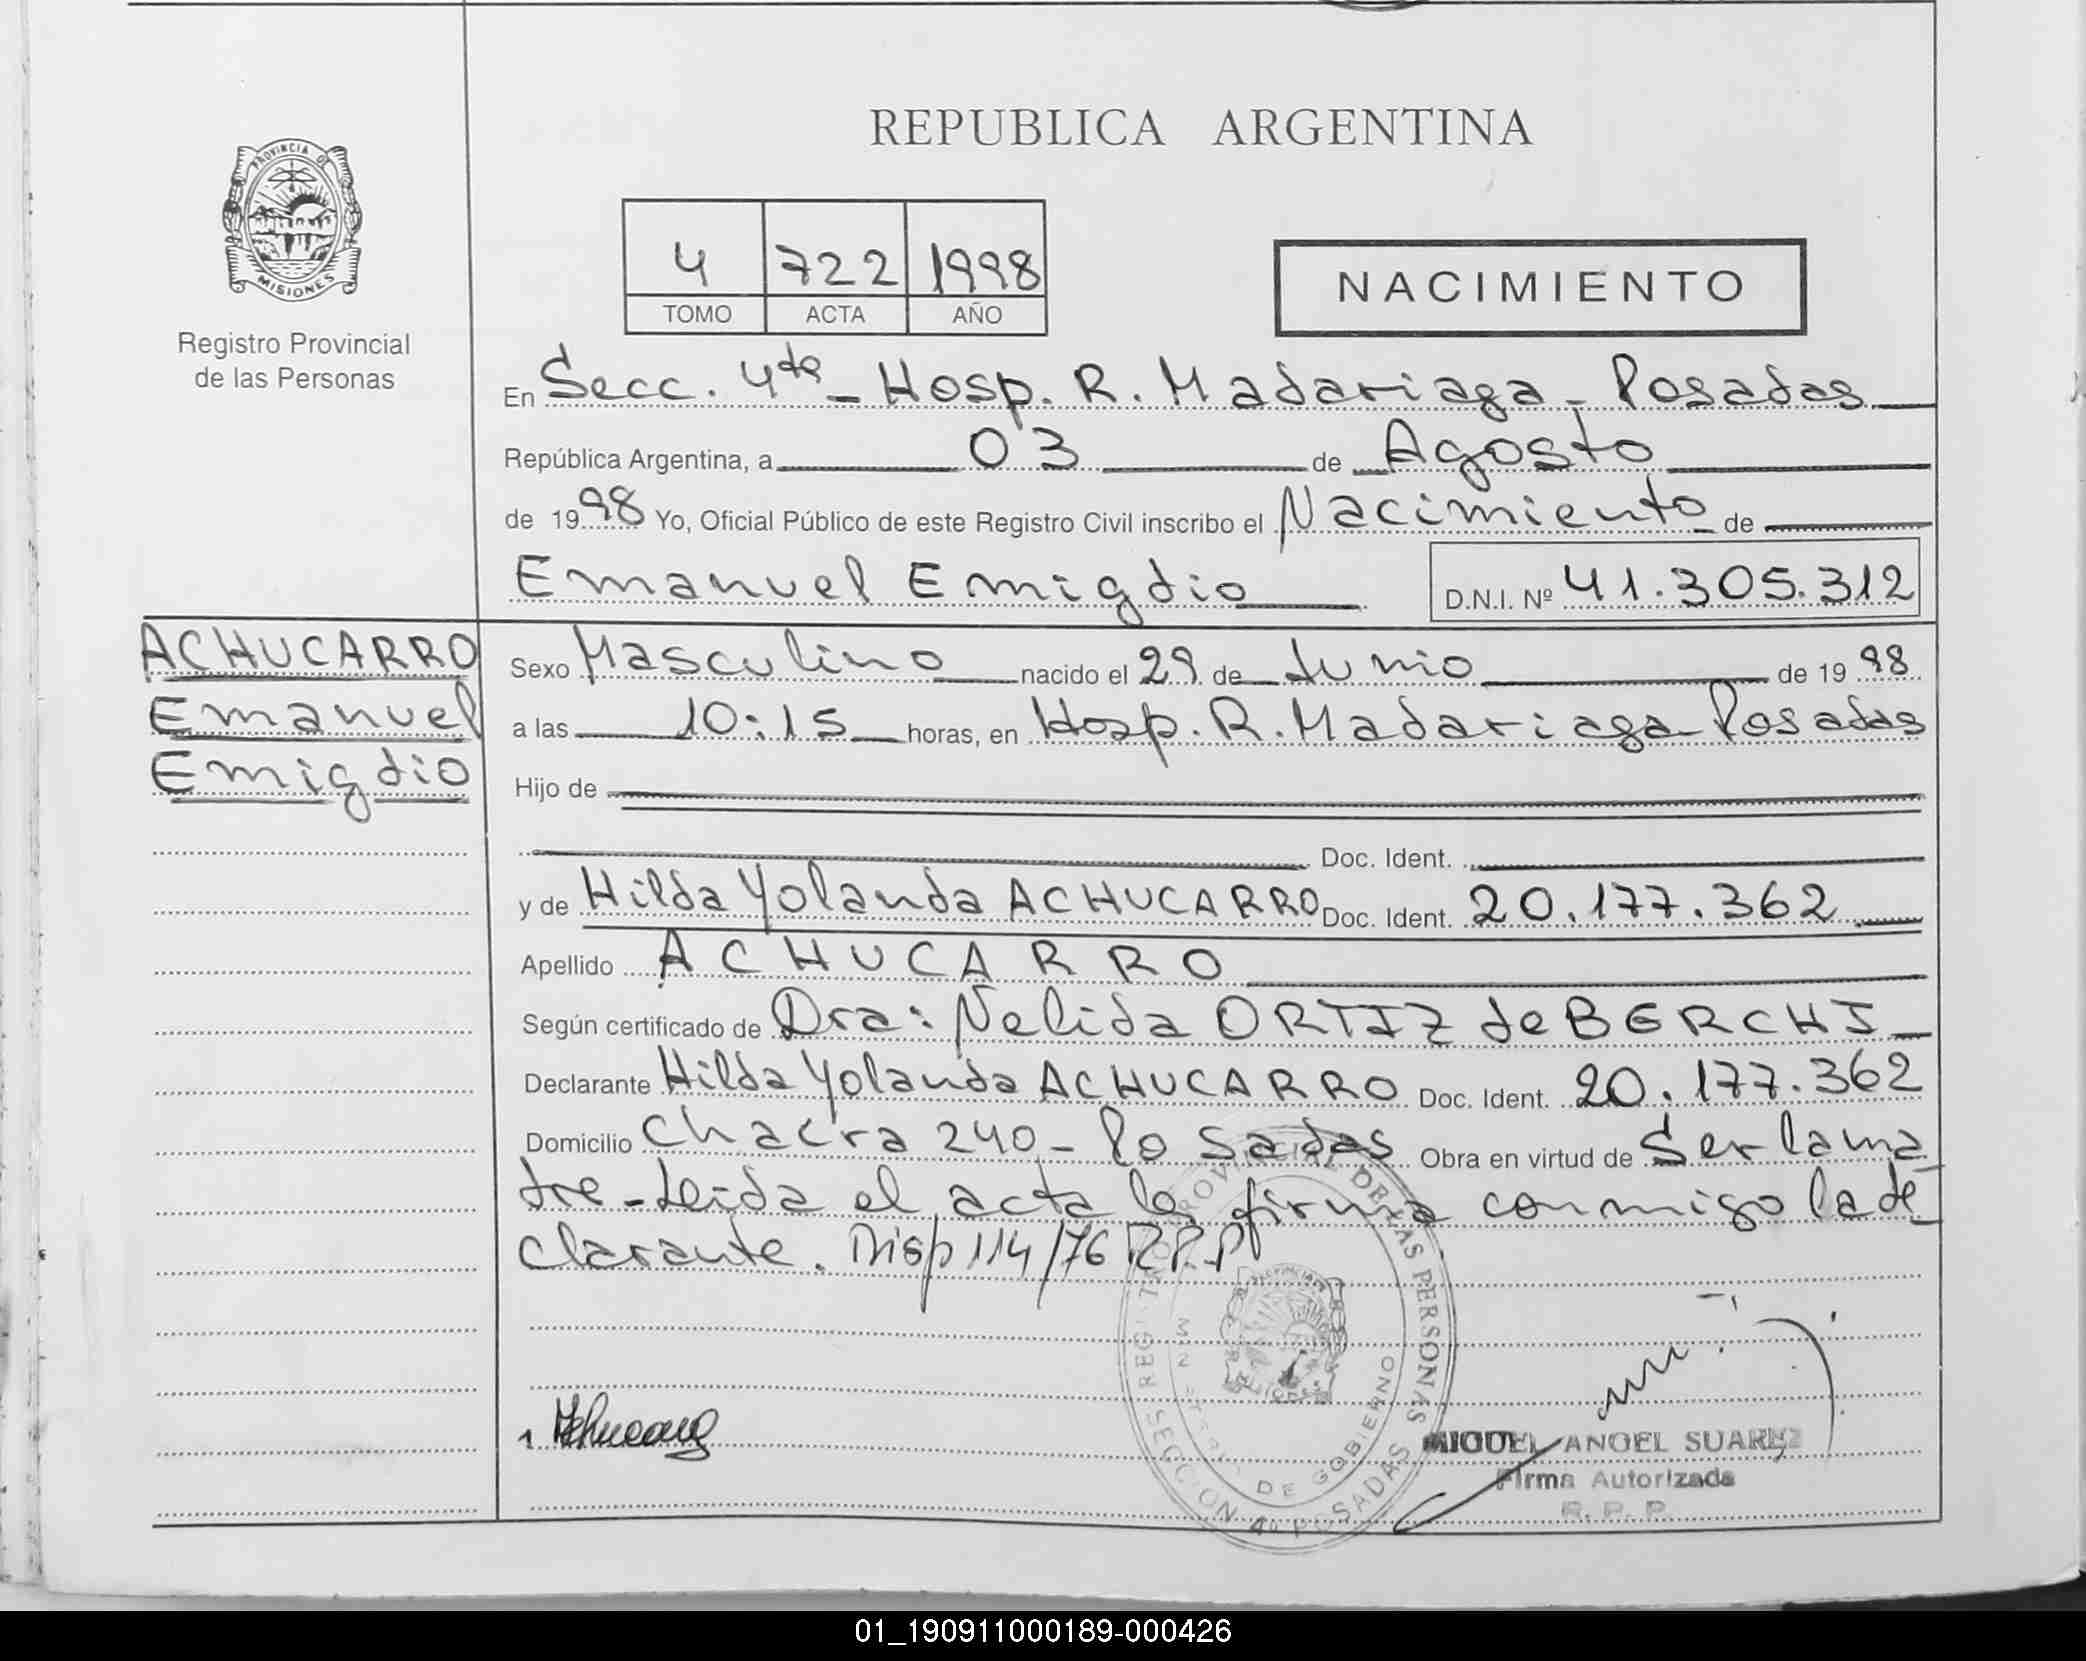 REPUBLICA ARGENTINA
PROVINCIA DE
MISIONES
Registro Provincial
de las Personas
4 722 1998
TOMO ACTA AÑO
NACIMIENTO
En Secc. 4ta - Hosp. R. Madariaga - Posadas
República Argentina, a 03 de Agosto
de 1998 Yo, Oficial Público de este Registro Civil inscribo el Nacimiento de
Emanuel Emigdio D.N.I. Nº 41.305.312
ACHUCARRO
Emanuel
Emigdio
Sexo Masculino nacido el 29 de Junio de 1998
a las 10:15 horas, en Hosp. R. Madariaga - Posadas
Hijo de
Doc. Ident.
y de Hilda Yolanda ACHUCARRO Doc. Ident. 20.177.362
Apellido ACHUCARRO
Según certificado de Dra: Nelida ORTIZ de BERCHI
Declarante Hilda Yolanda ACHUCARRO Doc. Ident. 20.177.362
Domicilio Chacra 240 - Posadas Obra en virtud de Ser la ma
dre - Leida el acta la firma conmigo la de
clarante. Disp 114/76 R.P.P
PROVINCIAL DE LAS PERSONAS
DE GOBIERNO
SECCION 4º POSADAS
MIGUEL ANGEL SUAREZ
Firma Autorizada
R. P. P.
01_190911000189-000426